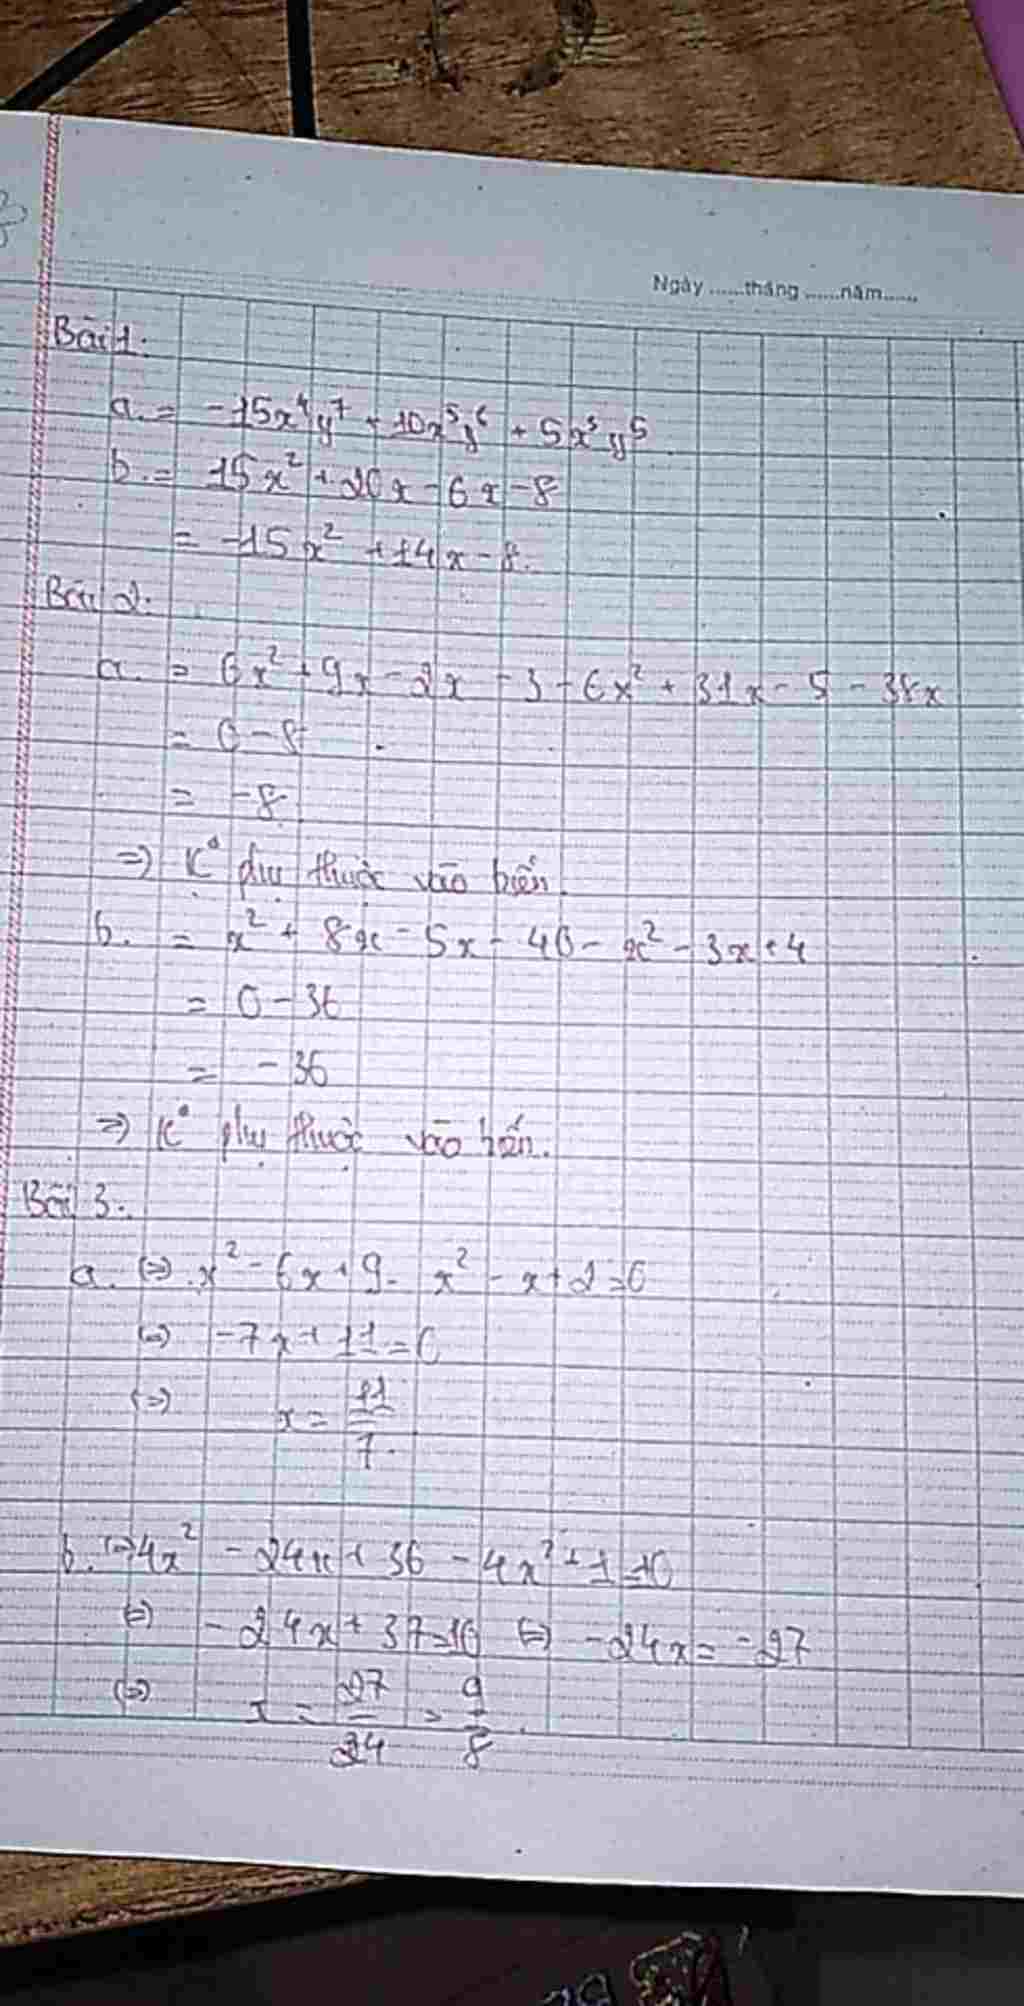 Ngày ......tháng ......năm......
Bài 1:
a. = -15x⁴y⁷ + 10x⁵y⁶ + 5x³y⁵
b. = 15x² + 20x - 6x - 8
= 15x² + 14x - 8.
Bài 2:
a. = 6x² + 9x - 2x - 3 - 6x² + 31x - 5 - 38x
= 0 - 8
= -8
=> K° phụ thuộc vào biến.
b. = x² + 8x - 5x - 40 - x² - 3x + 4
= 0 - 36
= -36
=> K° phụ thuộc vào biến.
Bài 3:
a. (=) x² - 6x + 9 - x² - x + 2 = 0
(=) -7x + 11 = 0
(=) x = 11/7.
b. (=) 4x² - 24x + 36 - 4x² + 1 = 10
(=) -24x + 37 = 10 (=) -24x = -27
(=) x = 27/24 = 9/8.